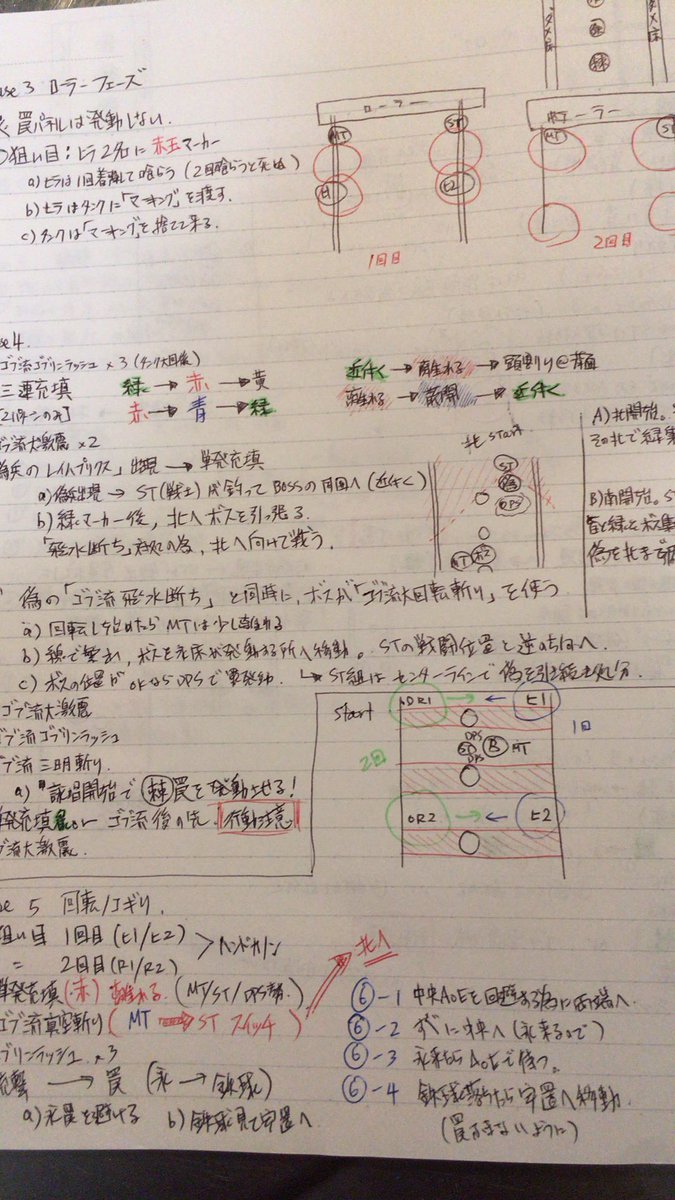 ダメ床
ダメ床
ase 3 ローラーフェーズ
罠パネルは発動しない.
の狙い目：ヒラ2名に赤玉マーカー
a) ヒラは1回着弾して喰らう (2回喰らうと死ぬ)
b) ヒラはタンクに「マーキング」を渡す.
c) タンクは「マーキング」を捨てて来る.
ローラー
MT
ST
H1
H2
1回目
ローラー
MT
ST
2回目
ase 4.
ゴブ流ゴブリンラッシュ ×3 (タンク大回復)
三連充填 緑 → 赤 → 黄
赤 → 青 → 緑
[2パターンのみ]
近付く → 離れる → 頭割り@背面
離れる → 散開 → 近付く
ゴブ流大激震 ×2
偽兵のレイムプリクス」出現 → 単発充填
a) 偽出現 → ST(戦士)が釣ってBOSSの
b) 緑マーカー後, 北へボスを引っ張る.
「飛水断ち」 北へ向けて戦う.
北 start
ST
偽
DPS
MT
A) 北開始.
B) 南開始.
偽の「ゴブ流 飛水断ち」と同時に, ボスが「ゴブ流大回転斬り」を使う
a) 回転し始めたらMTは少し離れる
b) 線で繋ぎ, ボスを 床が発動する所へ移動. STの戦闘位置と逆の方向へ.
c) ボスの位置がOKならDPSで罠発動. ↳ ST組はセンターラインで偽を引き続き処分.
ゴブ流大激震
ゴブ流ゴブリンラッシュ
ゴブ流 三明斬り.
a) 詠唱開始で 罠を発動させる!
単発充填 ゴブ流 行動注意
ゴブ流大激震.
start
DR1 → ← H1
1回
2回
DPS
ST B MT
DPS
DR2 → ← H2
se 5 回転ノコギリ.
狙い目 1回目 (H1/H2)
= 2回目 (R1/R2)
> ヘンドカノン
単発充填(赤) 離れる. (MT/ST/DPS
ゴブ流真空斬り ( MT → ST スイッチ )
北へ
ゴブリンラッシュ. ×3
→ 罠 (氷 → 鉄球)
a) 氷罠を避ける b) 鉄球見て定置へ
⑥-1 中央AoEを回避する為に両端へ.
⑥-2 すぐに中央へ (氷来るので)
⑥-3 氷来たらAoEで待つ.
⑥-4 鉄球落ちたら定置へ移動.
(罠ふまないように)